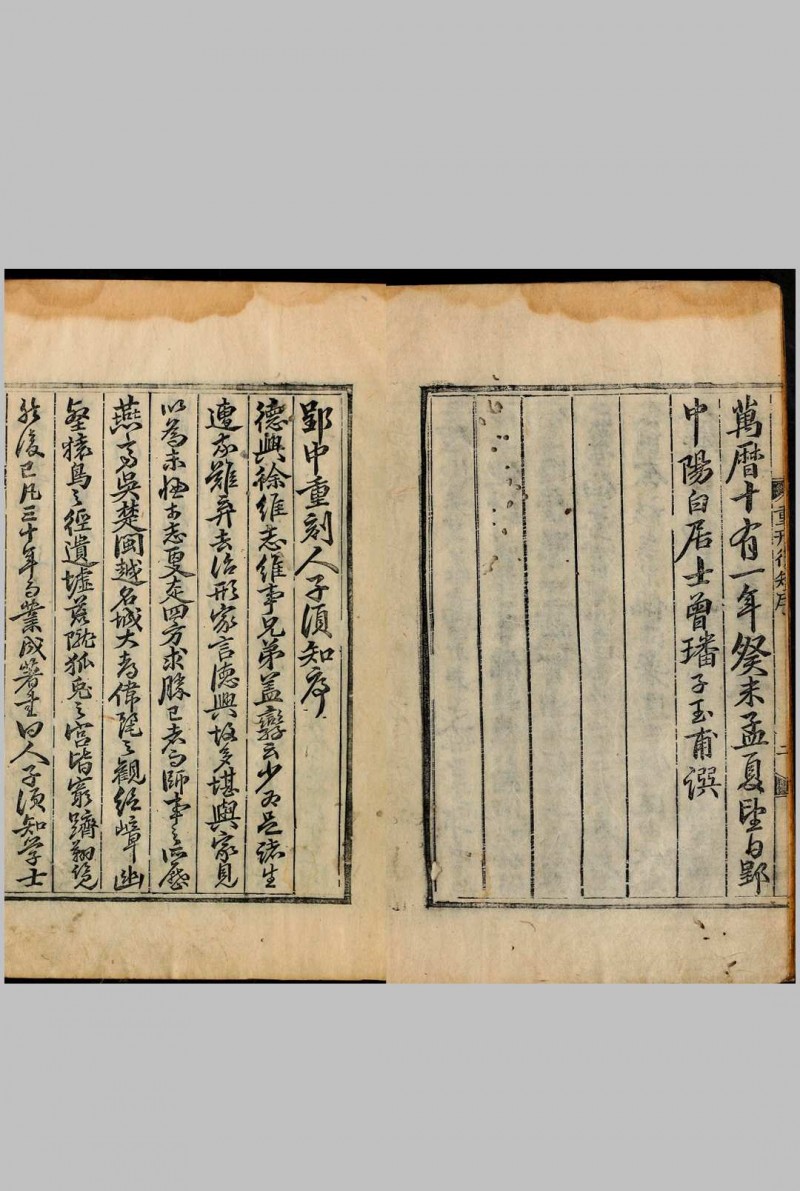 萬曆十有一年癸未孟夏望日郢
中陽白居士曾璠子玉甫譔
重刊須知序
二
郢中重刻人子須知序
德興徐維志維事兄弟蓋孿云少為邑諸生
遭家難弃去治形家言德興故多堪輿家見
以為未極志更走四方求勝己者而師事之所歷
燕齊吳楚閩越名城大都偉麗之觀絕嶂幽
壑猿鳥之徑遺墟荒隴狐兔之宮皆窮躋翔覽
然後已凡三十年而業成著書曰人子須知學士